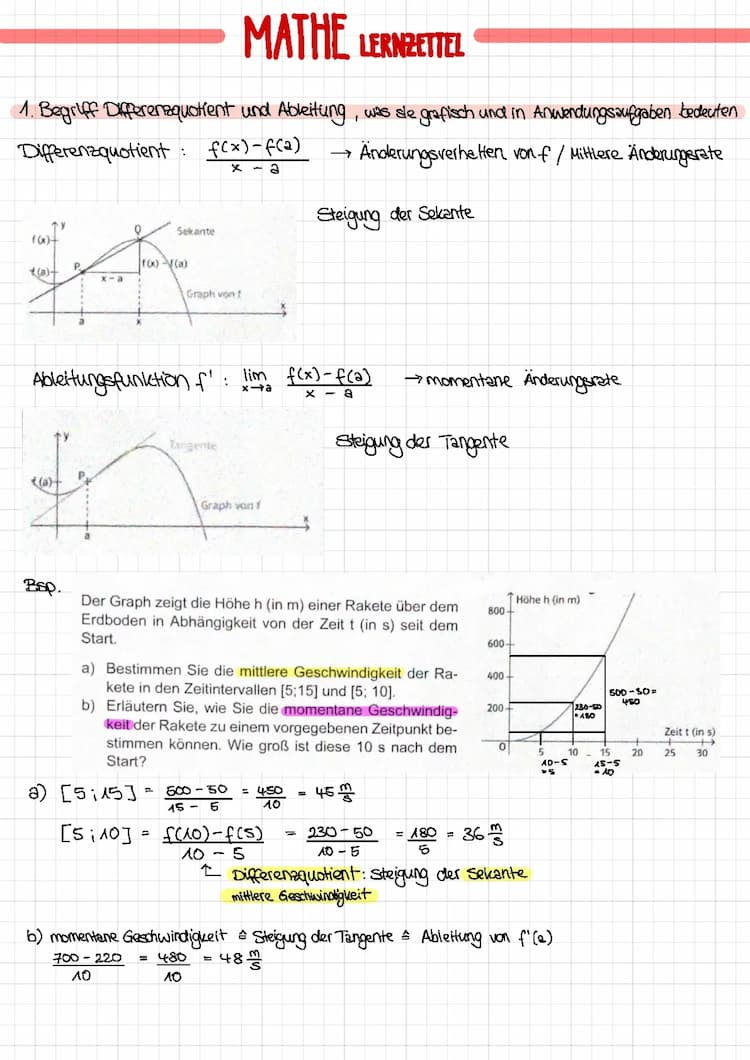 MATHE LERNZETTEL
1. Begriff Differenzquotient und Ableitung, was sie grafisch und in Anwendungsaufgaben bedeuten
Differenzquotient : f(x)-f(a) / x - a → Änderungsverhalten von f / Mittlere Änderungsrate
Steigung der Sekante
y
f(x)
Q
Sekante
f(a)
P
f(x) - f(a)
x - a
Graph von f
x
a
x
Ableitungsfunktion f' : lim x→a f(x)-f(a) / x - a → momentane Änderungsrate
Steigung der Tangente
y
Tangente
f(a)
P
Graph von f
x
a
Bsp.
Der Graph zeigt die Höhe h (in m) einer Rakete über dem
Erdboden in Abhängigkeit von der Zeit t (in s) seit dem
Start.
a) Bestimmen Sie die mittlere Geschwindigkeit der Ra-
kete in den Zeitintervallen [5;15] und [5; 10].
b) Erläutern Sie, wie Sie die momentane Geschwindig-
keit der Rakete zu einem vorgegebenen Zeitpunkt be-
stimmen können. Wie groß ist diese 10 s nach dem
Start?
Höhe h (in m)
800
600
400
500-50=
450
200
230-50
=180
Zeit t (in s)
0 5 10 15 20 25 30
10-5 15-5
=5 =10
a) [5;15] = 500 - 50 / 15 - 5 = 450 / 10 = 45 m/s
[5;10] = f(10)-f(5) / 10 - 5 = 230-50 / 10-5 = 180 / 5 = 36 m/s
↑ Differenzquotient: Steigung der Sekante
mittlere Geschwindigkeit
b) momentane Geschwindigkeit ≙ Steigung der Tangente ≙ Ableitung von f'(a)
700-220 / 10 = 480 / 10 = 48 m/s